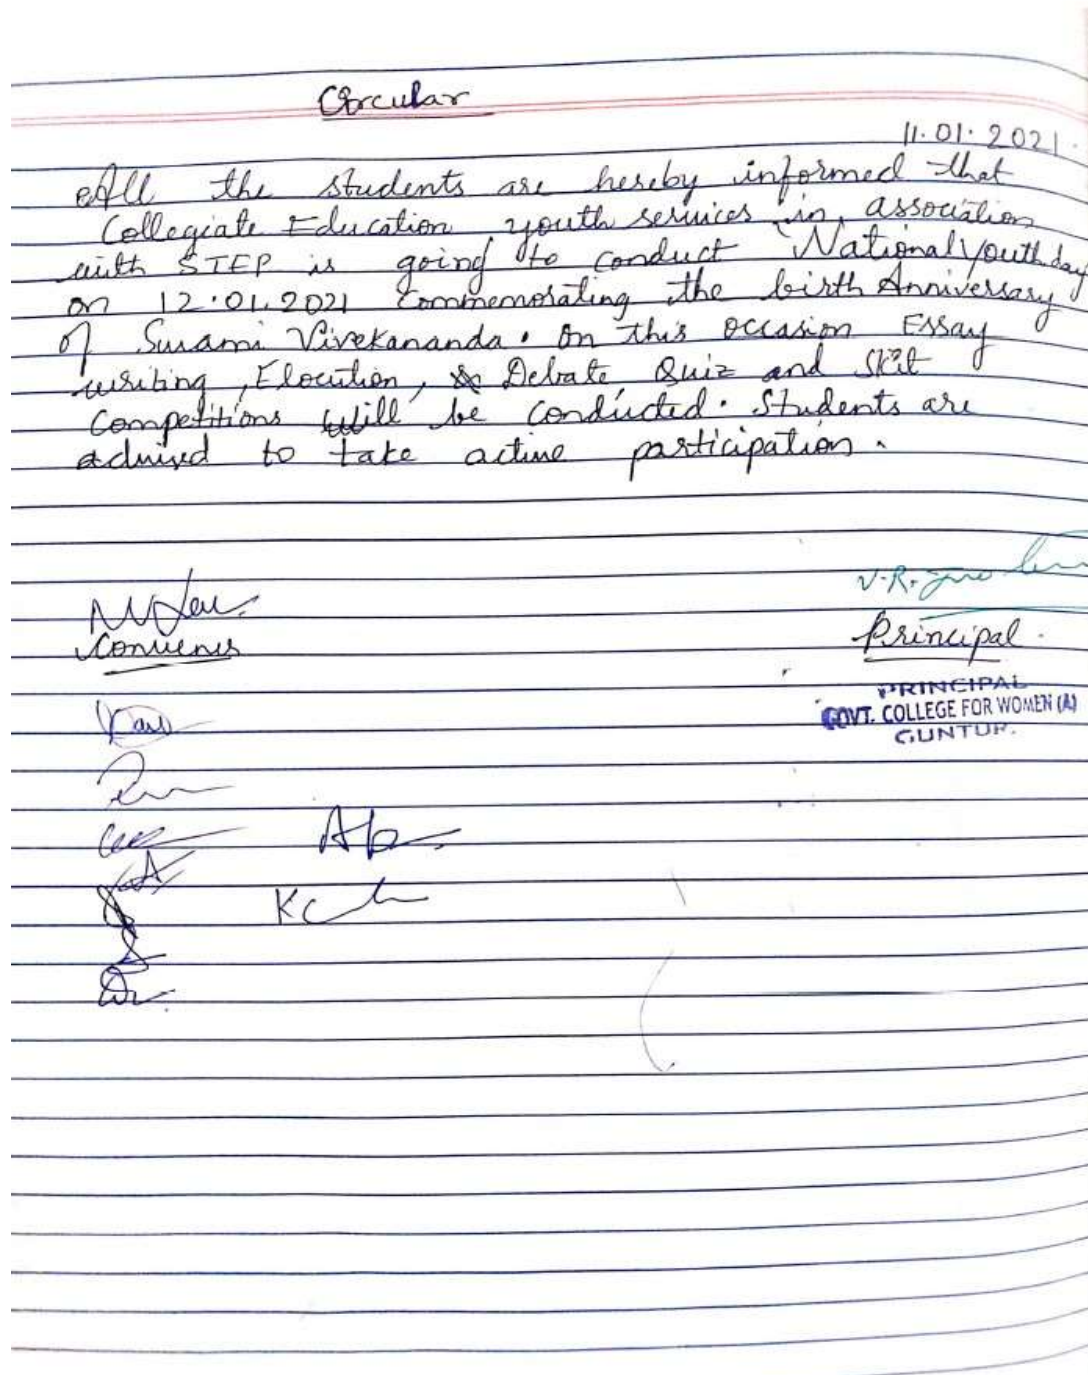 Circular
11.01.2021.
All the students are hereby informed that
Collegiate Education youth services in association
with STEP is going to conduct National Youth day
on 12.01.2021 Commemorating the birth Anniversary
of Swami Vivekananda. On this occasion Essay
writing, Elocution, Debate, Quiz and Skit
Competitions will be conducted. Students are
advised to take active participation.
V.R.
Convener
Principal.
PRINCIPAL
GOVT. COLLEGE FOR WOMEN (A)
GUNTUR.